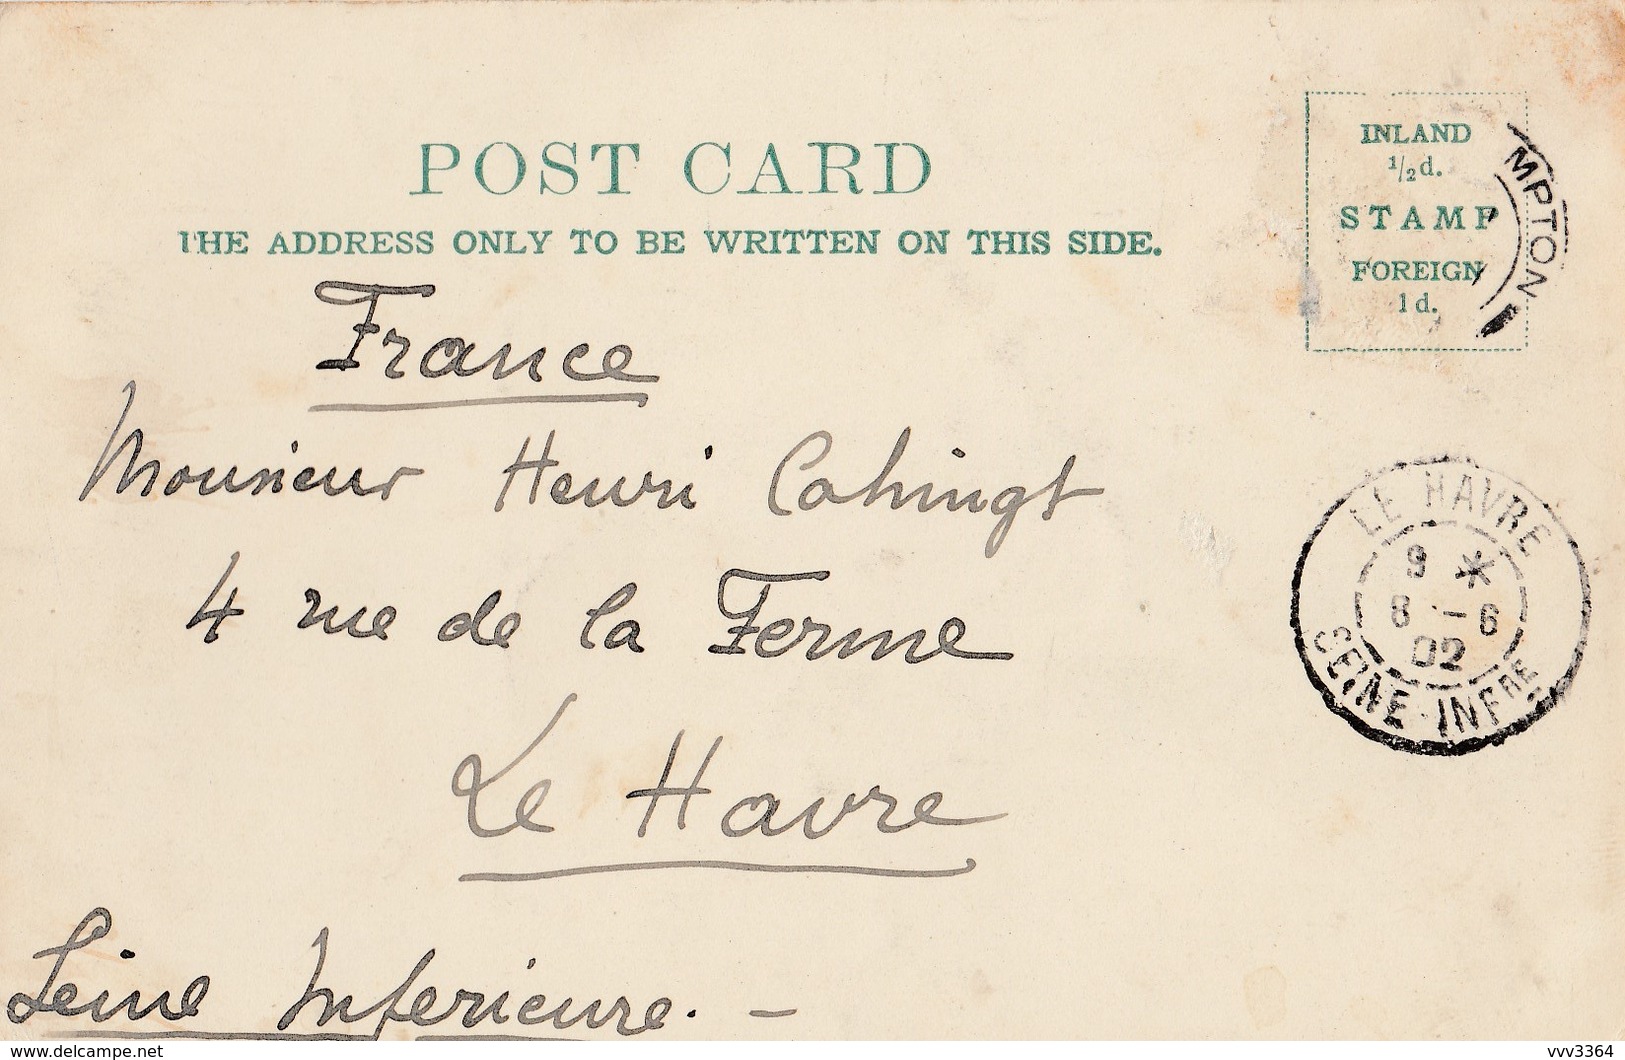 POST CARD
THE ADDRESS ONLY TO BE WRITTEN ON THIS SIDE.
INLAND
1/2d.
STAMP
FOREIGN
1d.
MPTON
France
Monsieur Henri Cahingt
4 rue de la Ferme
Le Havre
Seine Inferieure. -
LE HAVRE
9 *
8 - 6
02
SEINE-INFRE
delcampe.net
vvv3364